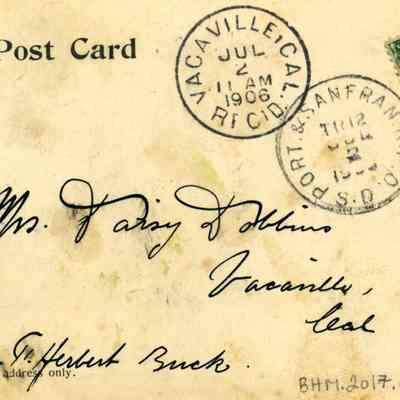 Post Card
VACAVILLE, CAL.
JUL
2
11 AM
1906
REC'D.
PORT. & SAN FRAN
TR 12
JUL
2
S.D.
Mrs. Daisy Dobbins
Vacaville,
Cal
T. Herbert Buck.
address only.
BHM.2017.